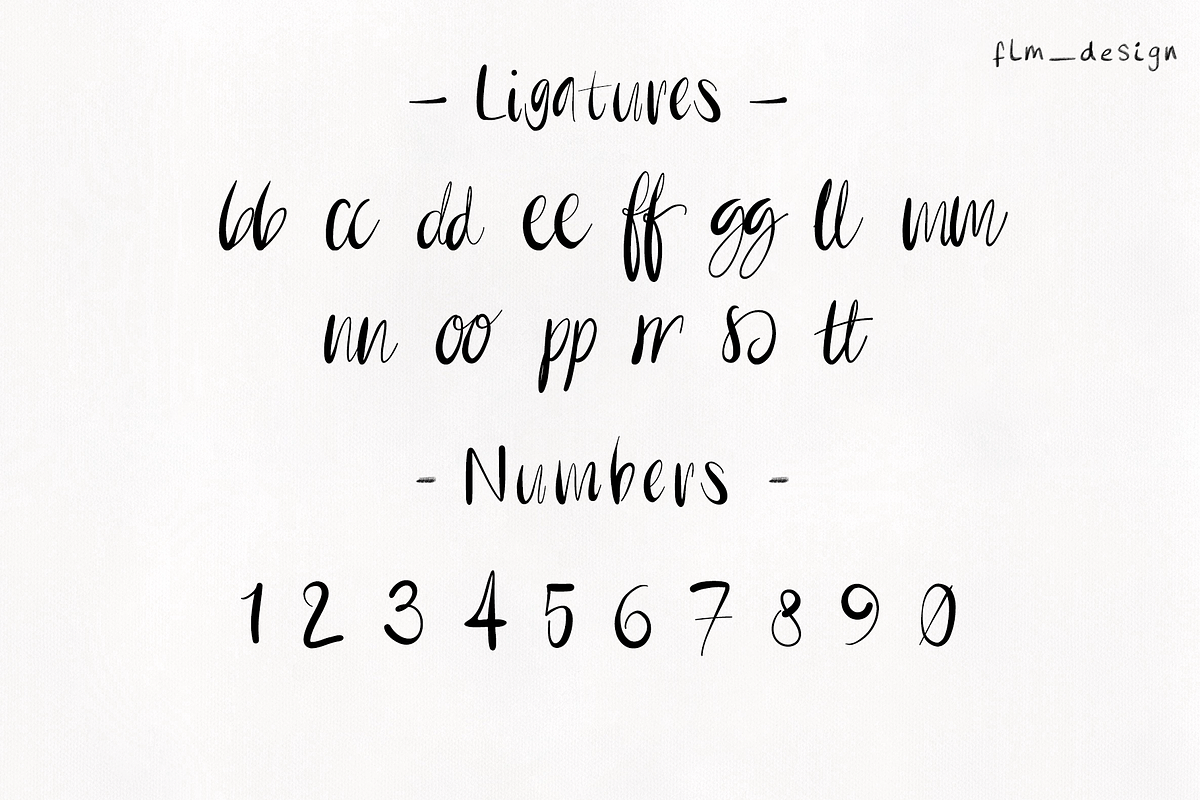 flm_design
– Ligatures –
bb cc dd ee ff gg ll mm
nn oo pp rr ss tt
- Numbers -
1 2 3 4 5 6 7 8 9 0